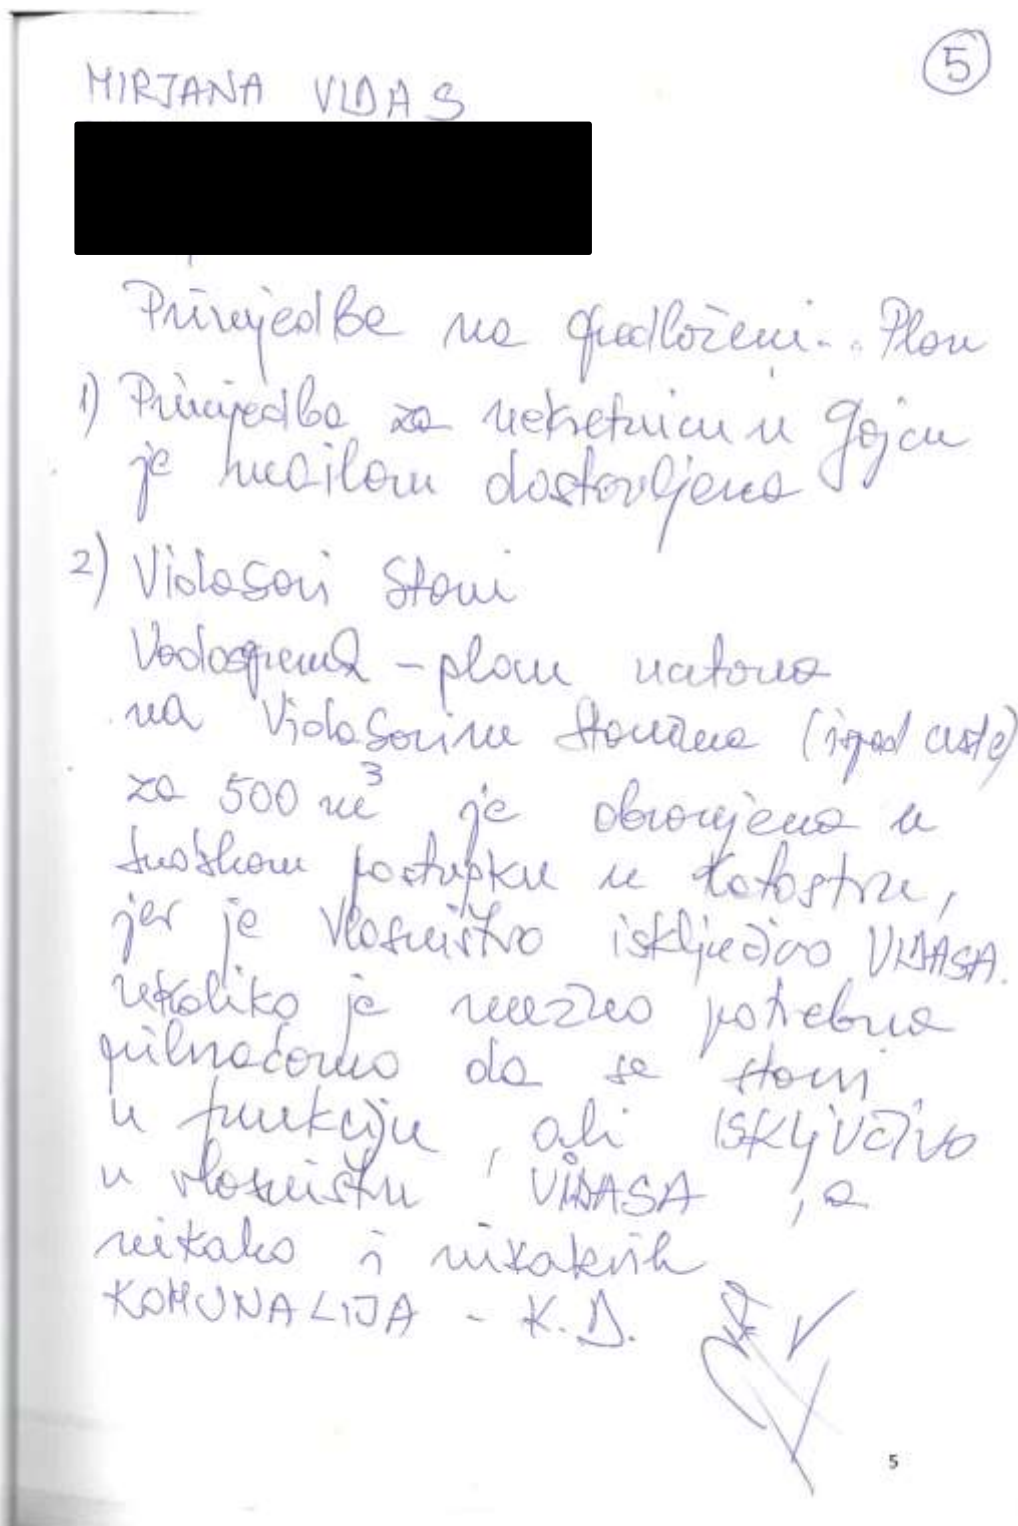 5
MIRJANA VIDAS
Primjedbe na predloženi.. Plan
1) Primjedba za nekretninu u Gojcu
je mailom dostavljena
2) Vidasovi Stani
Vodosprema - plan
na Vidasovim Stanima (ispod ceste)
za 500 m³ je u
postupku u Katastru,
jer je vlasništvo isključivo VIDASA.
Ukoliko je nužno potrebna
da se stavi
u funkciju, ali ISKLJUČIVO
u vlasništvu VIDASA, a
nikako i nikakvih
KOMUNALIJA - K.D.
5